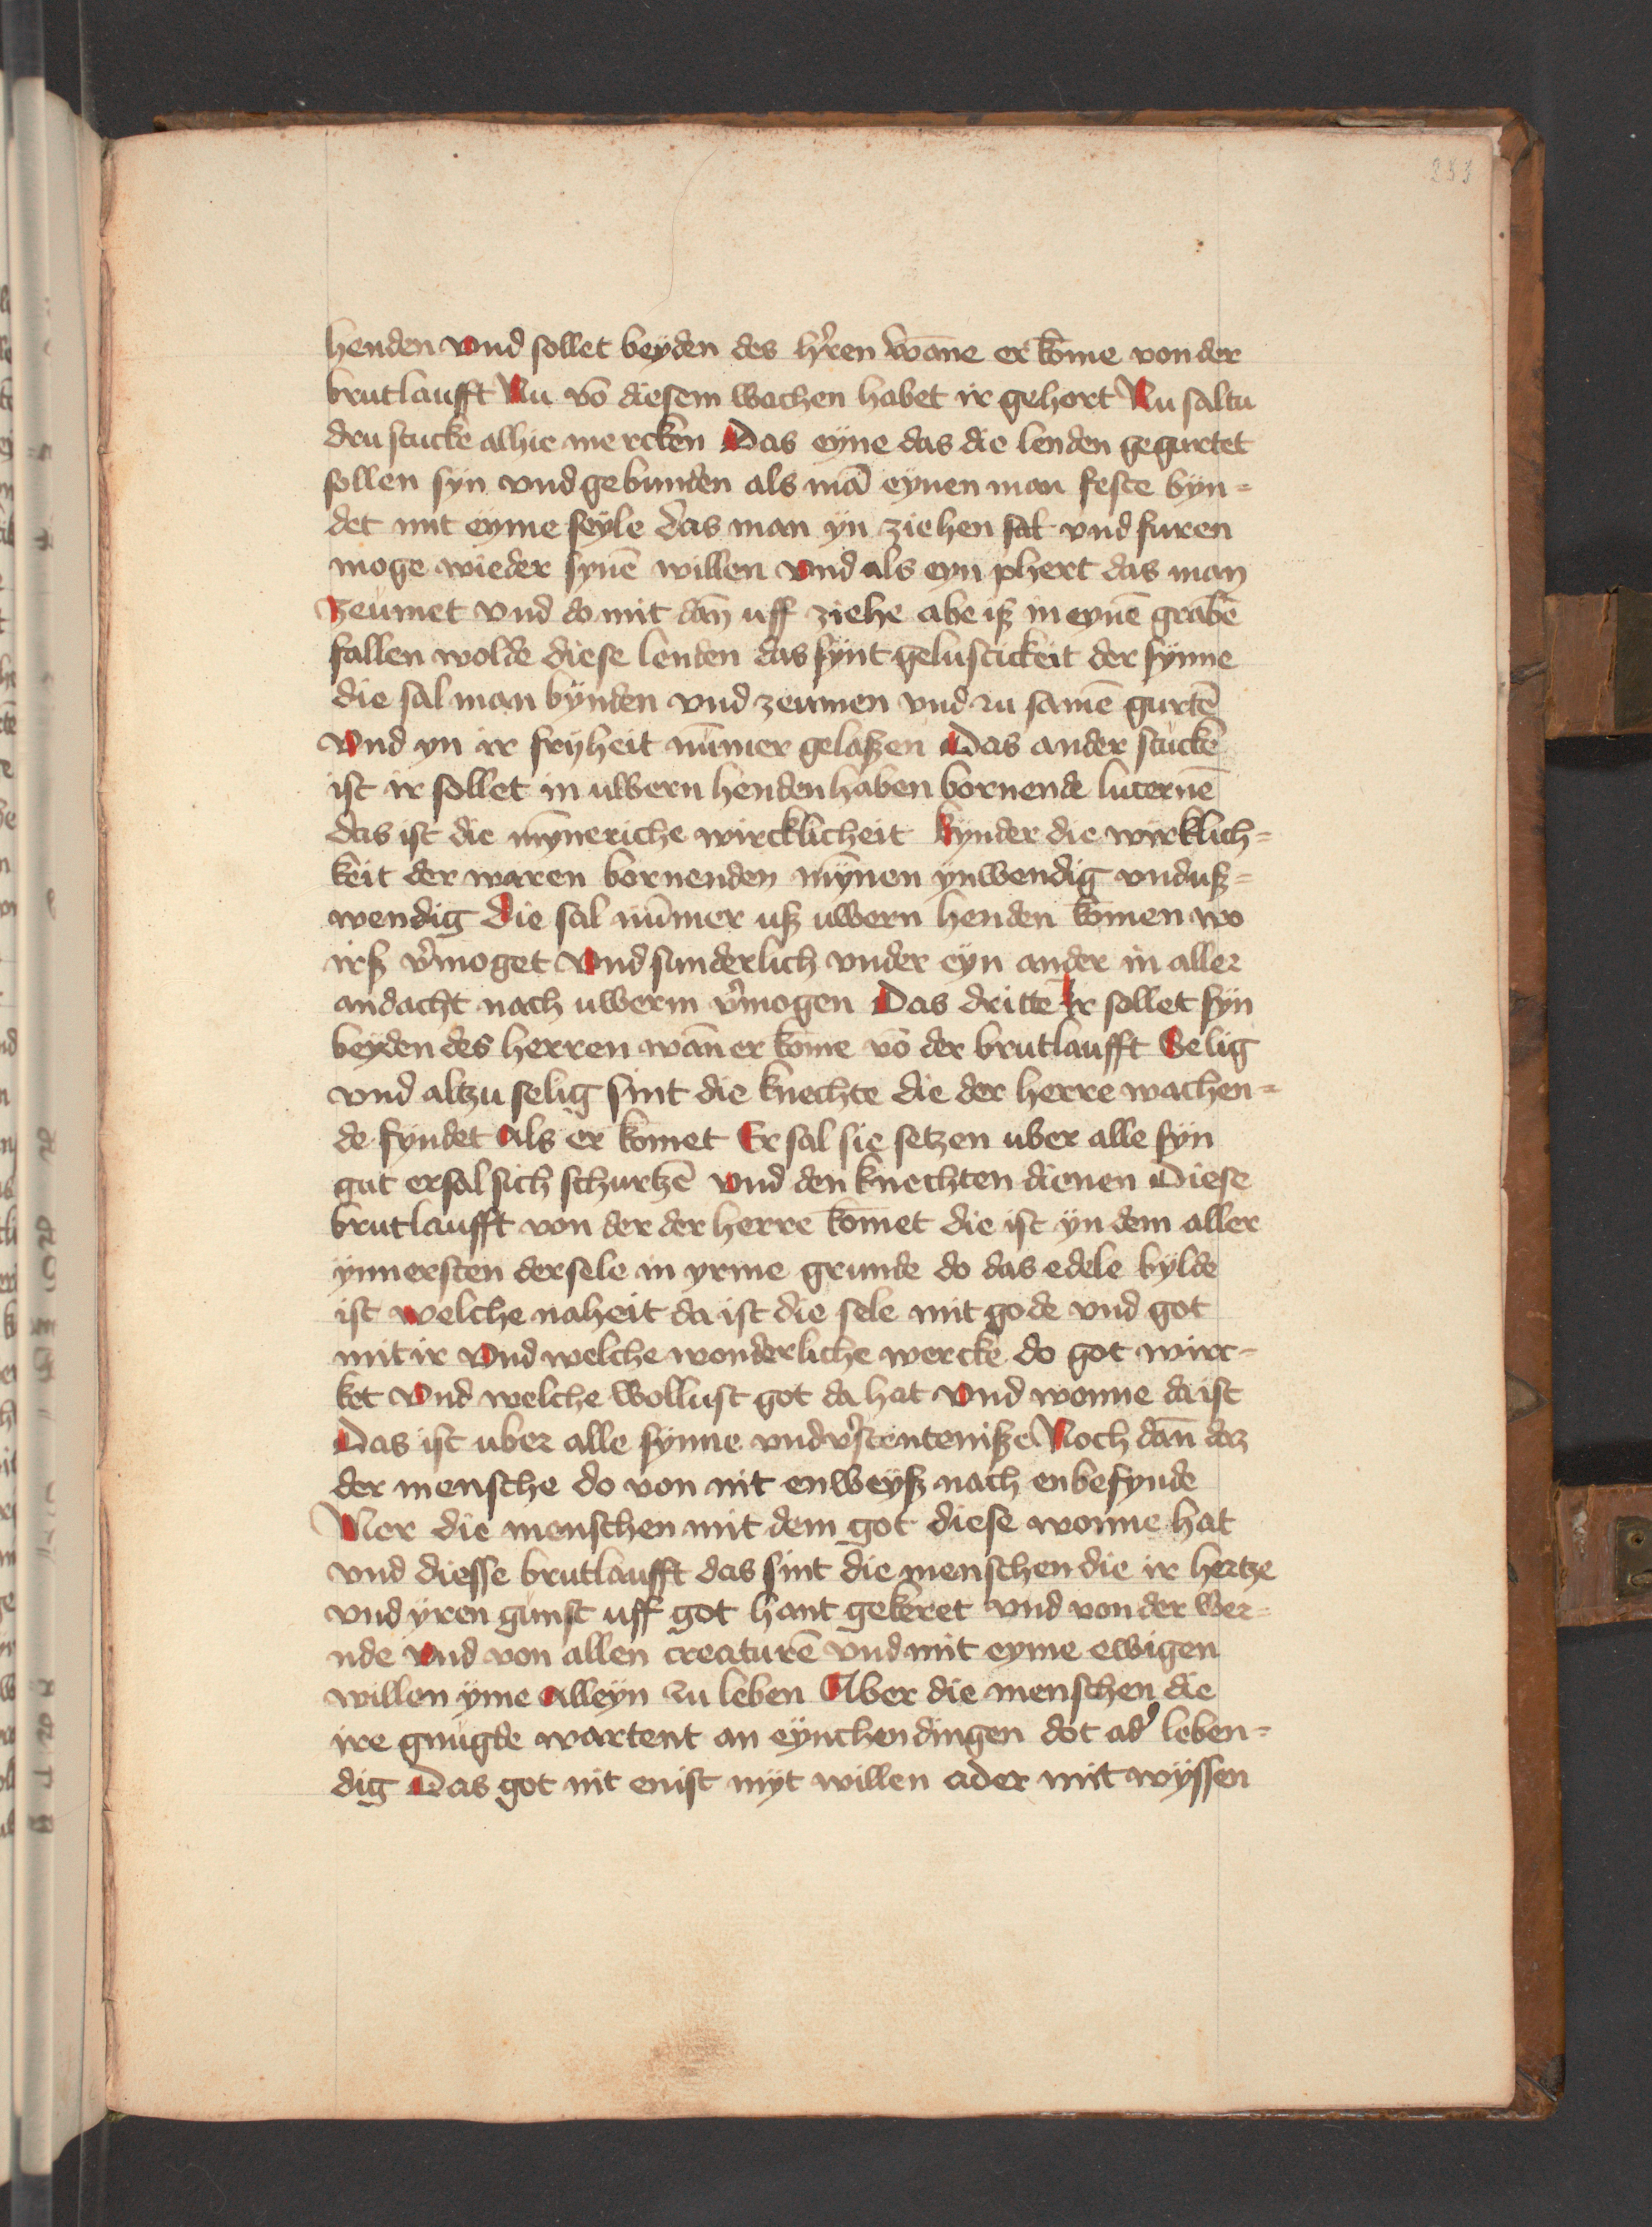 233
henden vnd sollet beyden des h̕ren wāne er kōme von der
brutlaufft Nu vō diesem wachen habet ir gehort Nu saltu
dru stucke alhie mercken Das eyne das die lenden gegurtet
sollen syn vnd gebunden als mā eynen man feste byn=
det mit eyme seyle das man yn ziehen sal vnd furen
moge wieder synē willen vnd als eyn phert das man
zeumet vnd do mit dan̄ uff ziehe abe iß in eynē grabē
fallen wolde diese lenden das synt gelustickeit der synne
die sal man bynden vnd zeumen vnd zu samē gurtē
vnd yn ir fryheit nūmer gelaßen Das ander stucke
ist ir sollet in uwern henden haben bornende lucernē
das ist die mȳneriche wircklicheit Kynder die wirklich=
keit der waren bornenden mȳnen ynwendig vnd uß=
wendig die sal nūmer uß uwern henden kōmen wo
irß v̕moget vnd sunderlich vnder eyn ander in aller
andacht nach uwerm v̕mogen Das dritte Ir sollet syn
beyden des herren wan̄ er kōme vō der brutlaufft Selig
vnd altzu selig sint die knechte die der herre wachen=
de fyndet Als er komet Er sal sie setzen uber alle syn
gut er sal sich schurtzē vnd den knechten dienen Diese
brutlaufft von der der herre kōmet die ist yn dem aller
ynnersten der sele in yrme grunde do das edele bylde
ist welche naheit da ist die sele mit gode vnd got
mit ir vnd welche wonderliche wercke do got wirc=
ket vnd welche wollust got da hat vnd wonne da ist
Das ist uber alle synne vnd v̕stenteniße Noch dan̄ daz
der mensche do von nit enweyß nach enbefynde
Mer die menschen mit dem got diese wonne hat
vnd diesse brutlaufft das sint die menschen die ir hertze
vnd yren gunst uff got hant gekeret vnd von der wer=
nde vnd von allen creaturē vnd mit eyme ewigen
willen yme alleyn zu leben Aber die menschen die
ire gnugde wartent an eynchen dingen dot ad̕ leben=
dig Das got nit enist myt willen ader mit wyssen